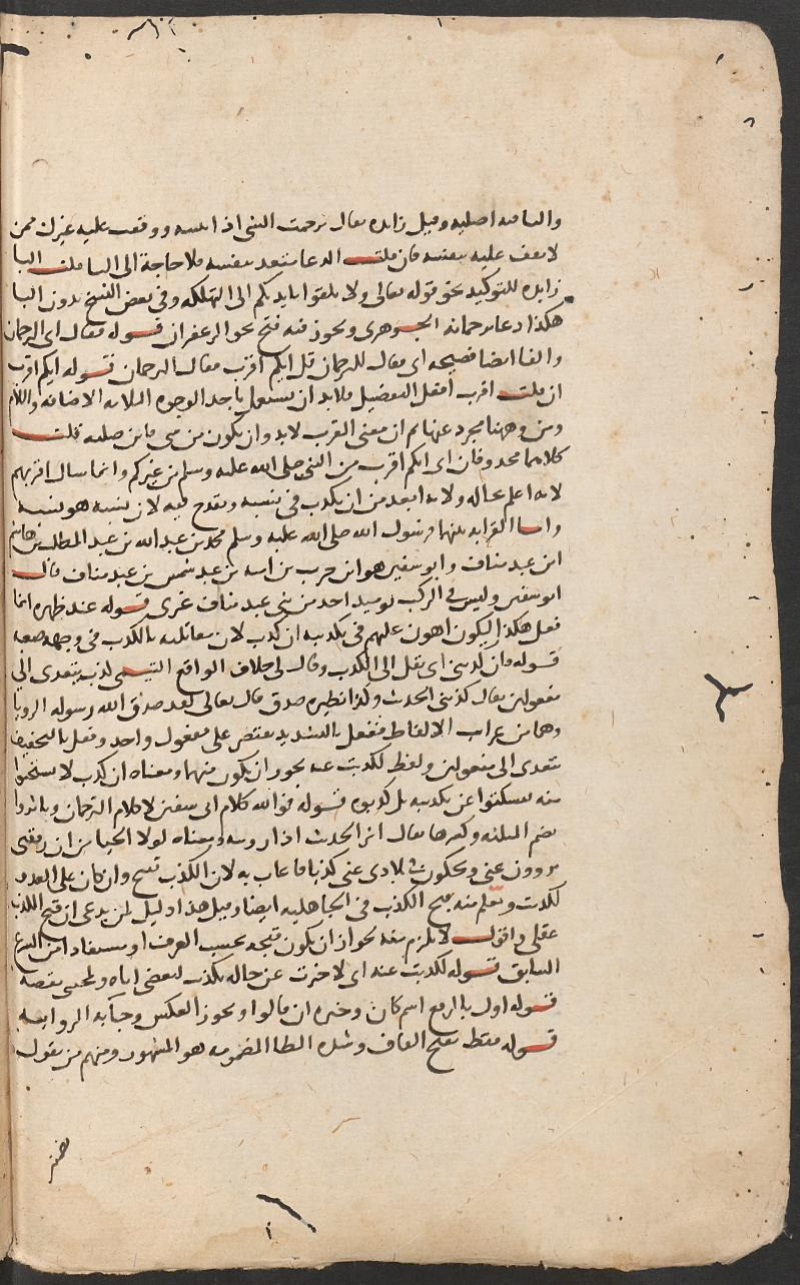 والتا فيه اصليه وقيل زايده يقال ترجمت الشي اذا بينته ووقعت عليه غيرك ممن
لا يقف عليه بنفسه فان قلت الدعا متعد بنفسه فلا حاجة الى البا قلت البا
زايده للتوكيد نحو قوله تعالى ولا تلقوا بايديكم الى التهلكه وفي بعض النسخ بدون البا
هكذا دعا ترجمانه الجوهرى ويجوز فيه فتح نحو الزعفران قوله فقال اى الترجمان
والفا ايضا فصيحه اى فقال للترجمان قل ايكم اقرب فقال الترجمان قوله ايكم اقرب
ان قلت اقرب افعل التفضيل فلابد ان يستعمل باحد الوجوه الثلاثه الاضافه واللام
ومن وههنا مجرد عنها ثم ان معنى القرب لابد وان يكون من شى فاين صلته قلت
كلاهما محذوفان اى ايكم اقرب من النبى صلى الله عليه وسلم من غيركم وانما سال اقربهم
لانه اعلم بحاله ولانه ابعد من ان يكذب فى نسبه ويقدح فيه لان نسبه هو نسبه
واما القرابه بينهما فرسول الله صلى الله عليه وسلم محمد بن عبد الله بن عبد المطلب بن هاشم
ابن عبد مناف وابو سفين هو ابن حرب بن اميه بن عبد شمس بن عبد مناف قال
ابو سفين وليس فى الركب يوميد احد من بنى عبد مناف غيرى قوله عند ظهره انما
فعل هكذا ليكون اهون عليهم فى تكذيبه ان كذب لان مقابلته بالكذب فى وجهه صعبه
قوله فان كذبنى اى نقل الى الكذب وقال لى خلاف الواقع التيمى كذب يتعدى الى
مفعولين يقال كذبنى الحديث وكذا نظيره صدق قال تعالى لقد صدق الله رسوله الرويا
وهما من غرايب الالفاظ ففعل بالتشديد يقتصر على مفعول واحد وفعل بالتخفيف
يتعدى الى مفعولين ولفظ لكذبت عنه يجوز ان يكون منهما ومعناه ان كذب لا تستحيوا
منه فتسكتوا عن تكذيبه بل كذبوه قوله فوالله كلام ابى سفين لا كلام الترجمان وياثروا
بضم المثلثه وكسرها يقال اثر الحديث اذا رويته ومعناه لولا الحيا من ان رفقتى
يروون عنى ويحكون فى بلادى عنى كذبا فاعاب به لان الكذب قبيح وان كان على العدو
لكذبت ويعلم منه قبح الكذب فى الجاهليه ايضا وقيل هذا دليل لمن يدعى ان قبح الكذب
عقلى واقول لا يلزم منه لجواز ان يكون قبحه بحسب العرف او مستفادا من الشرع
السابق قوله لكذبت عنه اى لاخبرت عن حاله بكذب لبغضى اياه ولمحبتى نقصه
قوله اول بالرفع اسم كان وخبره ان قال ويجوز العكس وجآء به الروايه
قوله فقط بفتح القاف وشده الطا المضمومه هو المشهور ومنهم من يقول